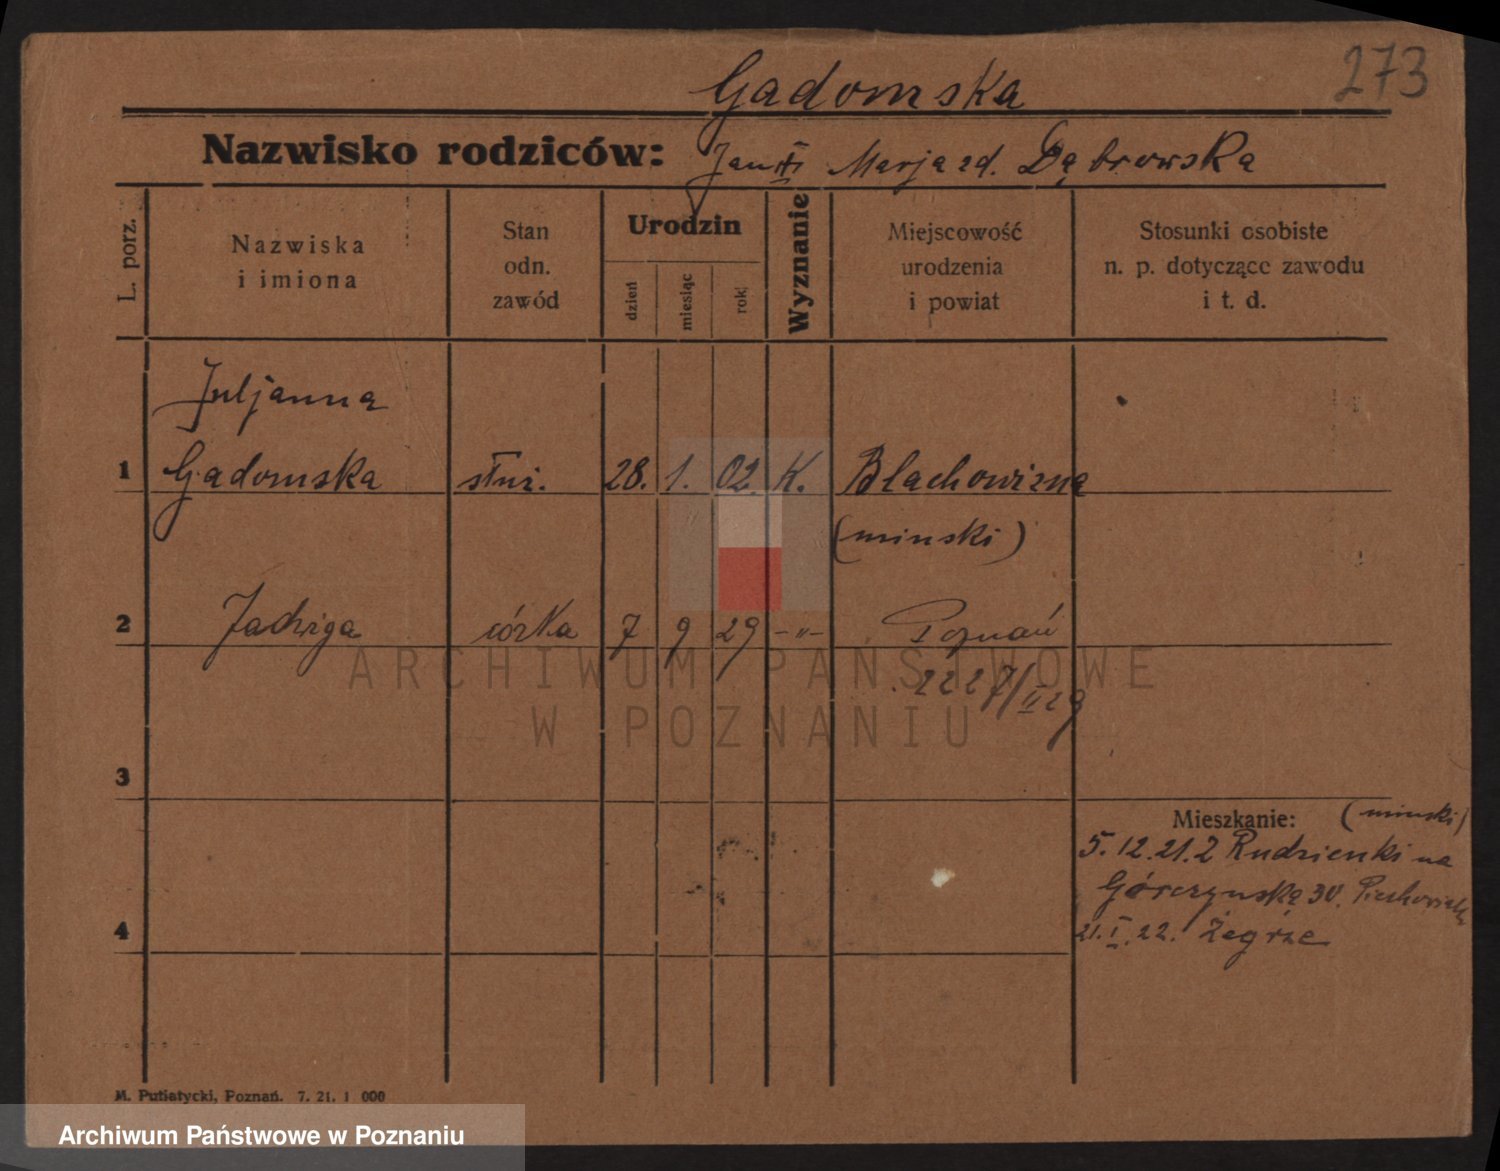 273
Gadomska
Nazwisko rodziców: Jan Marja zd. Dąbrowska
L. porz.
Nazwiska
i imiona
Stan
odn.
zawód
Urodzin
dzień
miesiąc
rok
Wyznanie
Miejscowość
urodzenia
i powiat
Stosunki osobiste
n. p. dotyczące zawodu
i t. d.
Juljanna
1 Gadomska służ. 28. 1. 02. K. Blachowizna
(minski)
2 Jadwiga córka 7 9 29 -"- Poznań
2227/II 29
3
Mieszkanie: (minski)
5.12.21. Z Rudzienki na
Górczynską 30.
4
21.I.22. Żegrze
M. Putiatycki, Poznań. 7. 21. 1 000
ARCHIWUM PAŃSTWOWE
W POZNANIU
Archiwum Państwowe w Poznaniu